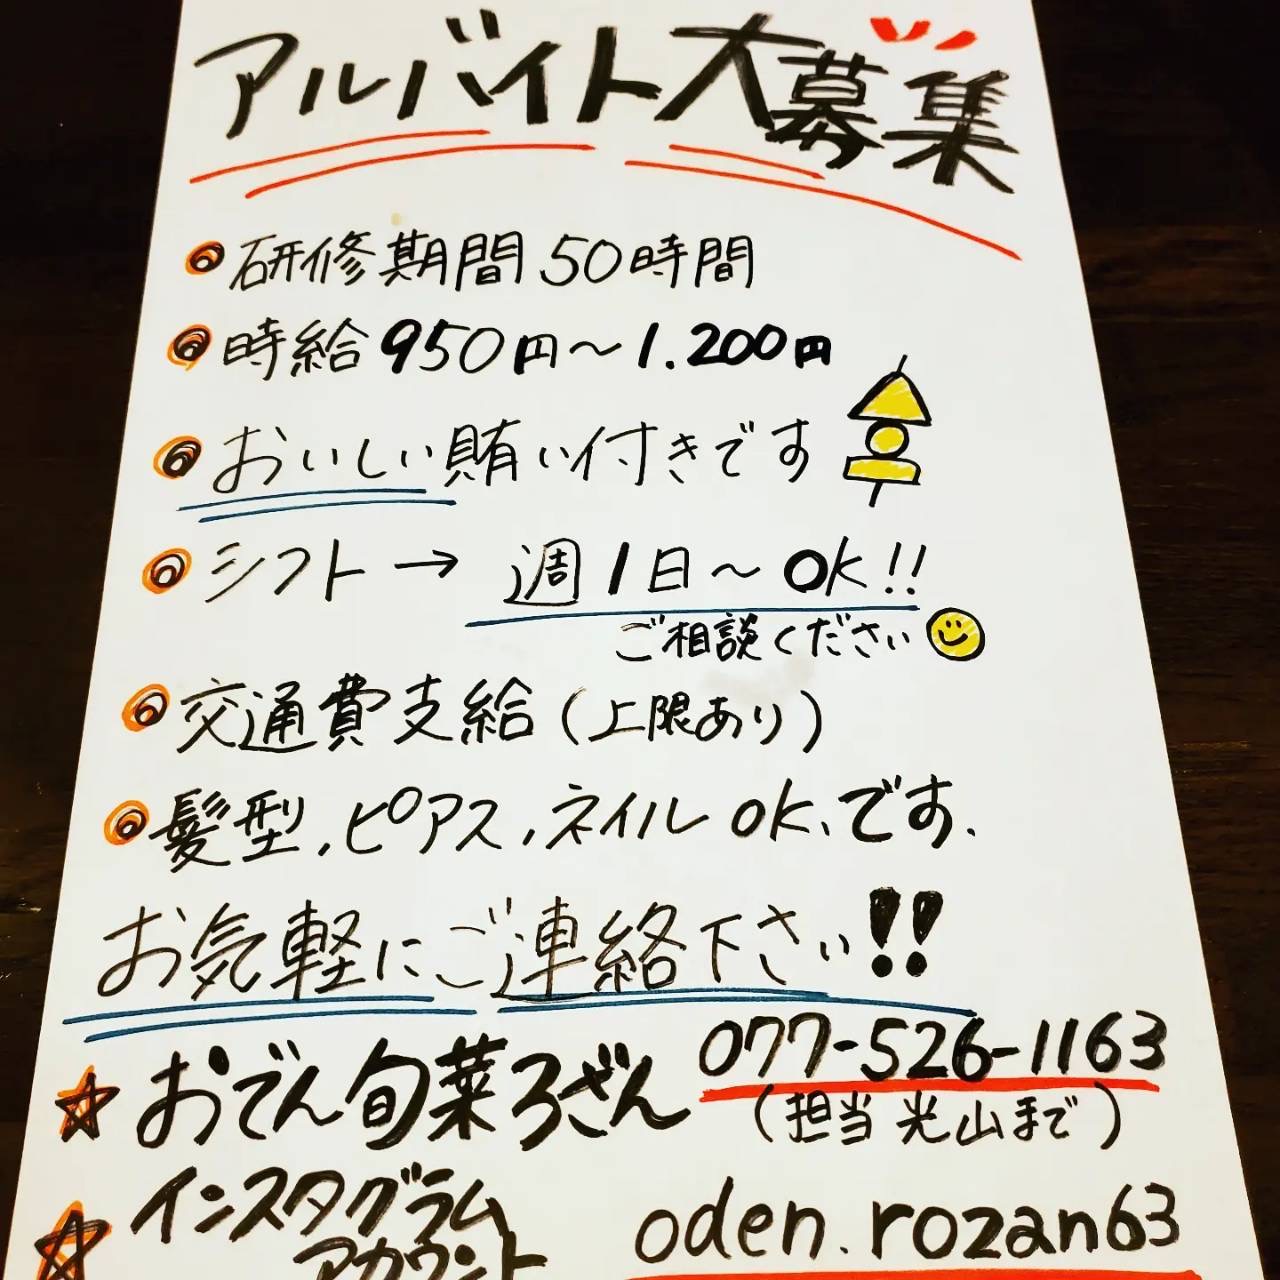 アルバイト大募集
研修期間50時間
時給950円〜1.200円
おいしい賄い付きです
シフト→週1日〜OK!!
ご相談ください
交通費支給(上限あり)
髪型,ピアス,ネイルOK、です.
お気軽にご連絡下さい!!
☆おでん旬菜ろざん 077-526-1163
(担当 光山まで)
☆インスタグラム
アカウント oden.rozan63